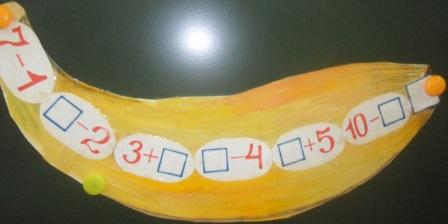 7-1
□-2
3+□
□-4
□+5
10-□
□